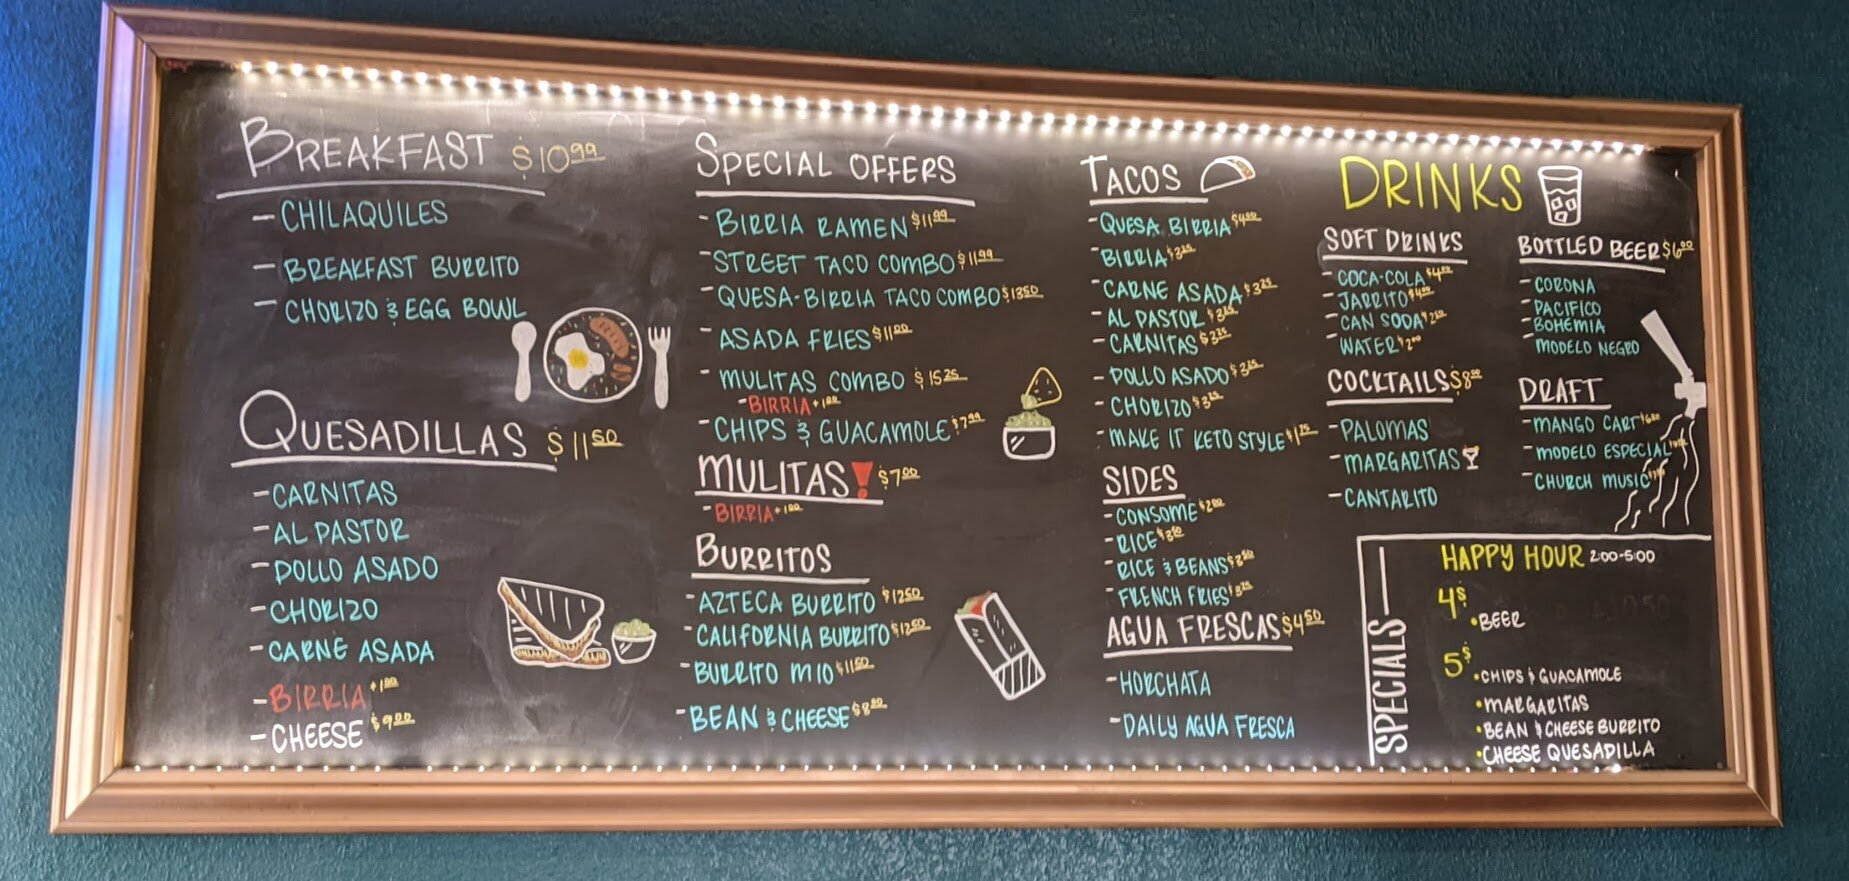 BREAKFAST $10.99
- CHILAQUILES
- BREAKFAST BURRITO
- CHORIZO & EGG BOWL
QUESADILLAS $11.50
- CARNITAS
- AL PASTOR
- POLLO ASADO
- CHORIZO
- CARNE ASADA
- BIRRIA +1.00
- CHEESE $9.00
SPECIAL OFFERS
- BIRRIA RAMEN $11.99
- STREET TACO COMBO $11.99
- QUESA-BIRRIA TACO COMBO $13.50
- ASADA FRIES $11.00
- MULITAS COMBO $15.25
- BIRRIA +1.00
- CHIPS & GUACAMOLE $7.99
MULITAS! $7.00
- BIRRIA +1.00
BURRITOS
- AZTECA BURRITO $12.50
- CALIFORNIA BURRITO $12.50
- BURRITO MIO $11.50
- BEAN & CHEESE $8.00
TACOS
- QUESA BIRRIA $4.00
- BIRRIA $3.25
- CARNE ASADA $3.25
- AL PASTOR $3.25
- CARNITAS $3.25
- POLLO ASADO $3.25
- CHORIZO $3.25
- MAKE IT KETO STYLE $1.75
SIDES
- CONSOME $2.00
- RICE
- RICE & BEANS
- FRENCH FRIES $3.25
AGUA FRESCAS $4.50
- HORCHATA
- DAILY AGUA FRESCA
DRINKS
SOFT DRINKS
- COCA-COLA $4.00
- JARRITO $4.00
- CAN SODA $2.50
- WATER $2.00
COCKTAILS $8.00
- PALOMAS
- MARGARITAS
- CANTARITO
BOTTLED BEER $6.00
- CORONA
- PACIFICO
- BOHEMIA
- MODELO NEGRO
DRAFT
- MANGO CART
- MODELO ESPECIAL
- CHURCH MUSIC
SPECIALS
HAPPY HOUR 2:00-5:00
4$
• BEER
5$
• CHIPS & GUACAMOLE
• MARGARITAS
• BEAN & CHEESE BURRITO
• CHEESE QUESADILLA